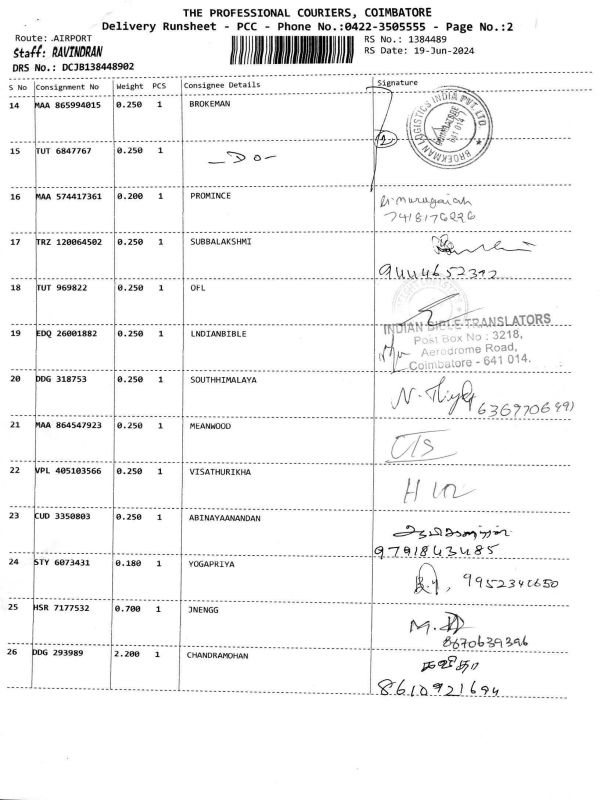 THE PROFESSIONAL COURIERS, COIMBATORE
Delivery Runsheet - PCC - Phone No.:0422-3505555 - Page No.:2
Route: .AIRPORT RS No.: 1384489
Staff: RAVINDRAN RS Date: 19-Jun-2024
DRS No.: DCJB138448902
S No Consignment No Weight PCS Consignee Details Signature
14 MAA 865994015 0.250 1 BROKEMAN
BROEKMAN LOGISTICS INDIA PVT LTD.
COIMBATORE
641 014
2
15 TUT 6847767 0.250 1
-Do-
16 MAA 574417361 0.200 1 PROMINCE
murugaiah
7418176226
17 TRZ 120064502 0.250 1 SUBBALAKSHMI
9444652312
18 TUT 969822 0.250 1 OFL
19 EDQ 26001882 0.250 1 LNDIANBIBLE
INDIAN BIBLE TRANSLATORS
Post Box No : 3218,
Aerodrome Road,
Coimbatore - 641 014.
20 DDG 318753 0.250 1 SOUTHHIMALAYA
N.
21 MAA 864547923 0.250 1 MEANWOOD
22 VPL 405103566 0.250 1 VISATHURIKHA
23 CUD 3350803 0.250 1 ABINAYAANANDAN
9791843485
24 STY 6073431 0.180 1 YOGAPRIYA
9952340650
25 HSR 7177532 0.700 1 JNENGG
8670639396
26 DDG 293989 2.200 1 CHANDRAMOHAN
கவிதா
8610921694